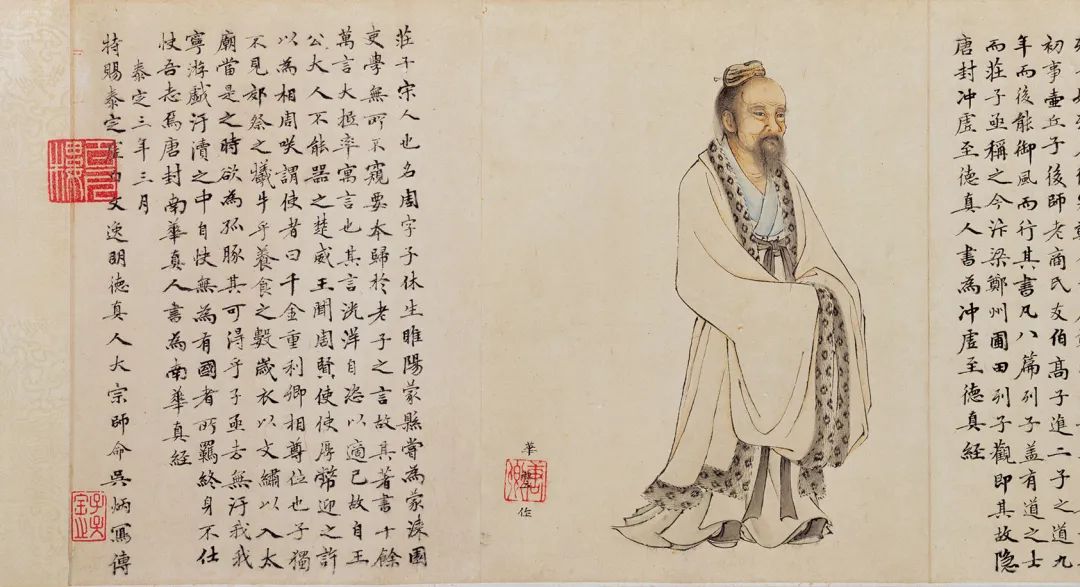 初事壺丘子後師老商氏友伯高子進二子之道九
年而後能御風而行其書凡八篇列子盖有道之士
而莊子亟稱之今汴梁鄭州圃田列子觀即其故隱
唐封冲虛至德真人書為冲虛至德真経
華
作
莊子宋人也名周字子休生睢陽蒙縣嘗為蒙漆園
吏學無所不窺要本歸於老子之言故其著書十餘
萬言大抵率寓言也其言洸洋自恣以適己故自王
公大人不能器之楚威王聞周賢使使厚幣迎之許
以為相周咲謂使者曰千金重利卿相尊位也子獨
不見郊祭之犧牛乎養食之數歲衣以文繡以入太
廟當是之時欲為孤豚其可得乎子亟去無汙我我
寧游戲汙瀆之中自快無為有國者所羈終身不仕
快吾志焉唐封南華真人書為南華真経
泰定三年三月
特賜泰定虛白文逸明德真人大宗師命吳炳寫傳